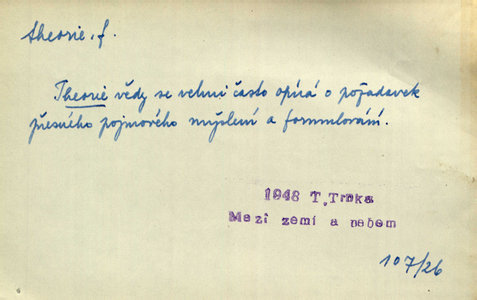 theorie, f.
Theorie vědy se velmi často opírá o požadavek
přesného pojmového myšlení a formulování.
1948 T. Trnka
Mezi zemí a nebem
107/26